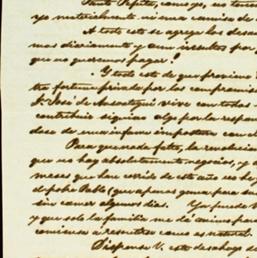 Pepito, consejo, no ten
yo materialmente ni una camisa de
A todo esto se agrega los desai
mas diariamente y aun insultos por
que no queremos pagar!
Y todo esto de que proviene
tra fortuna privada por los compromisos
D. José de Ansoategui vive con todas
contribuir siquiera algo por la respon
dosa de una infame impostura con el
Para que nada falte, la revolucion
que no hay absolutamente negocios, y
meses que han corrido de este año no ha
el pobre Pablo (que apenas gana para
sin comer algunos dias. Yo puedo
y que solo la familia me dá animo para
comienza á resentirse como es natural.
Dispense V. este desahogo de